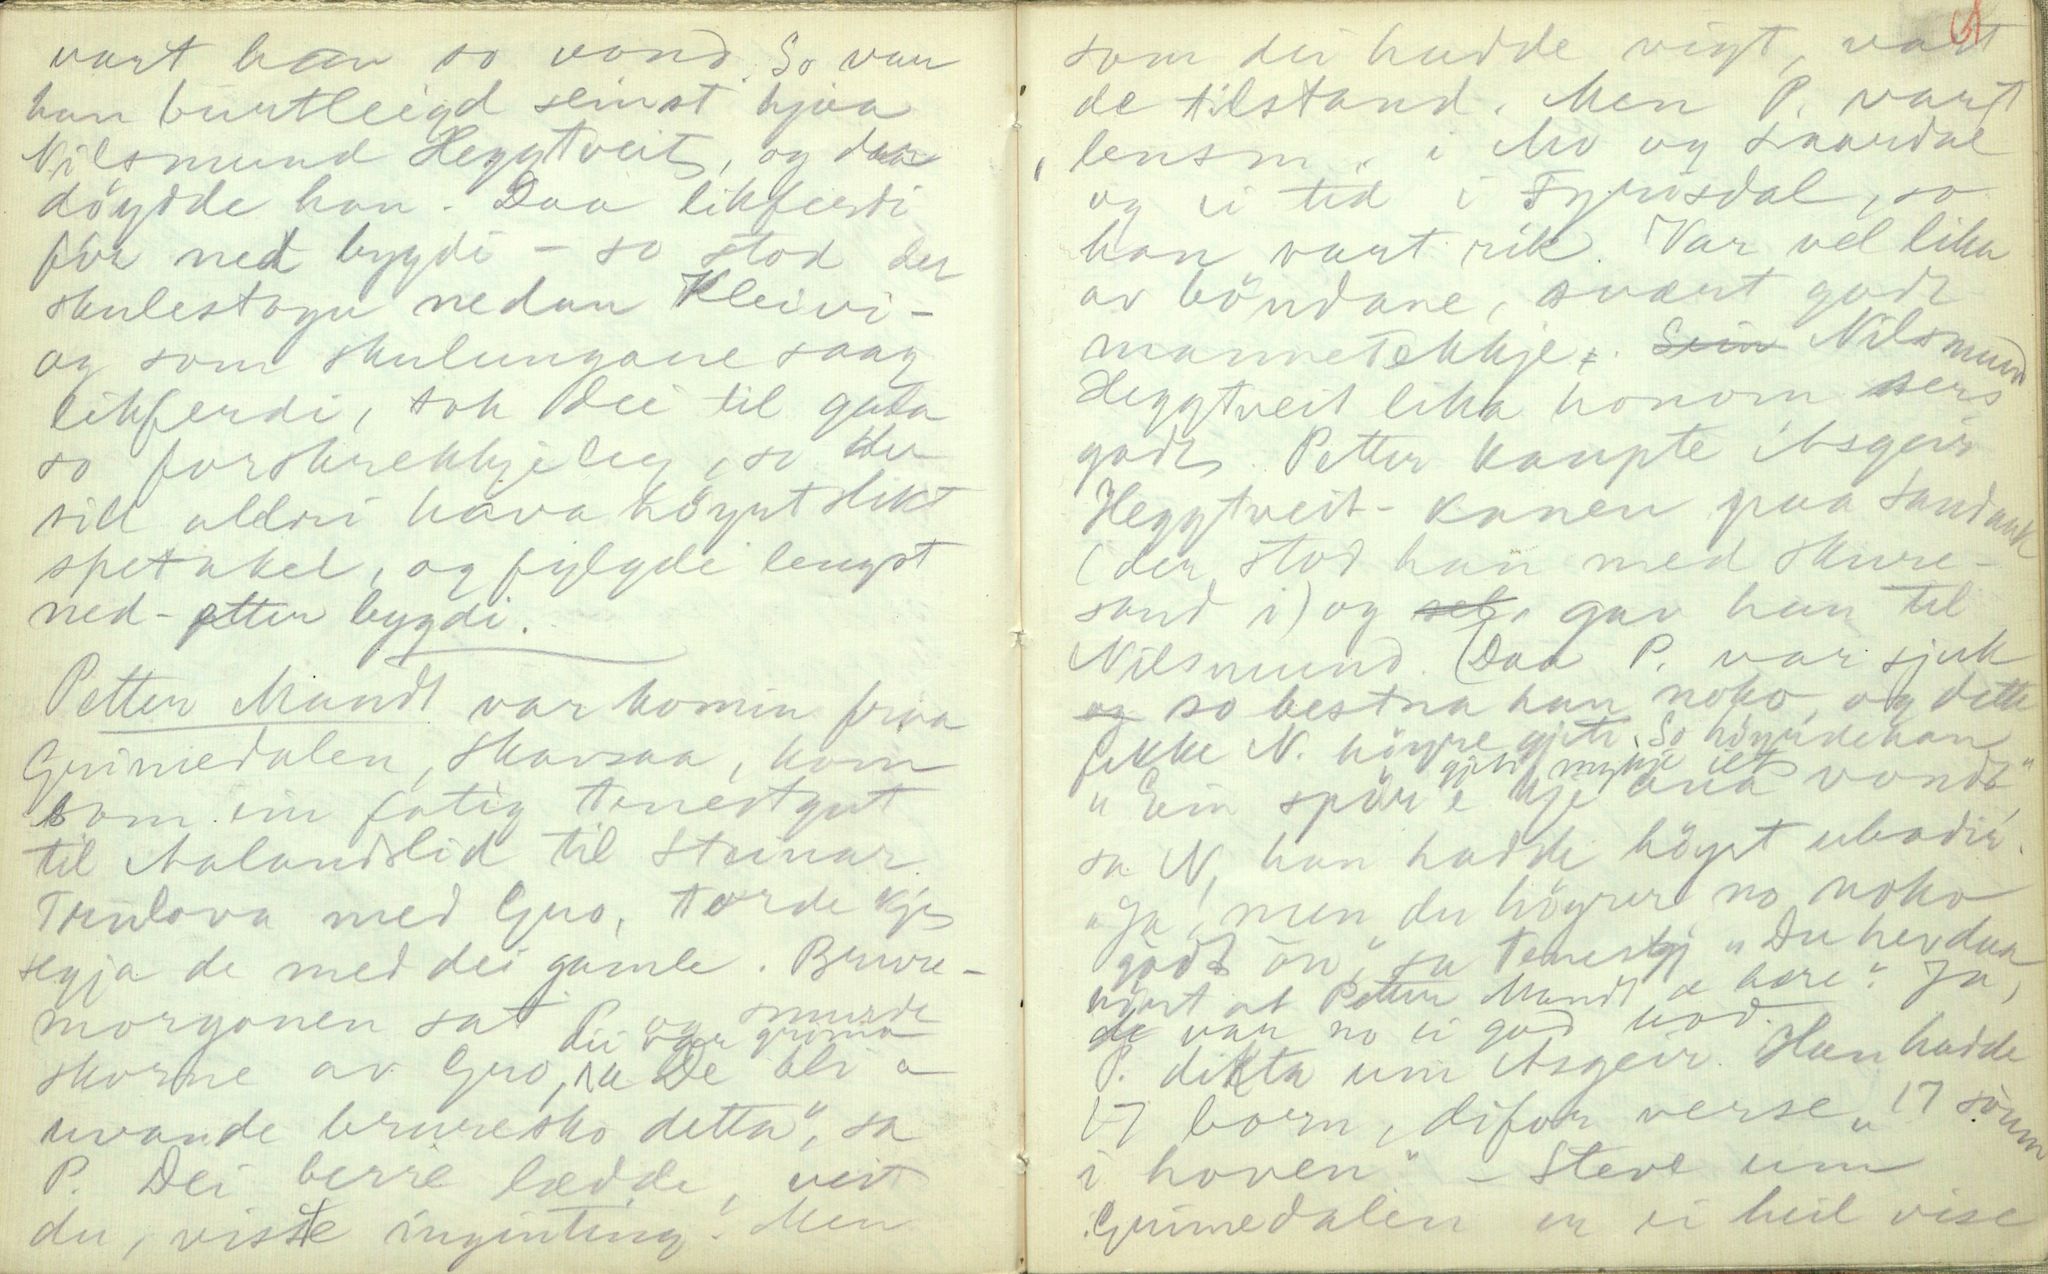 vart han so vond. So var
han burtleigd seinst hjaa
Nilsmund Heggtveit, og daa
döydde han. Daa likferdi
fór ned bygdi – so stod der
skulestogu nedan Kleivi –
og som skulungane saag
likferdi, sok dei til gala
so forskrekkjeleg, so der
sill aldri hava höyrt slikt
spetakel, og fylgde lengst
ned-etter bygdi.
Petter Mandt var komin fraa
Grimedalen, Skavsaa, kom
som ein fatig tenestgut
til Aalandslid til Steinar.
Trulova med Gro, torde kje
segja de med dei gamle. Brure-
morgonen sat P. og smurde
dei var gröne
skorne av Gro, „De bli a
uvande bruresko detta", sa
P. Dei berre lædde, veit
du, visste ingenting! Men
som dei hadde vigt, vart
de tilstand. Men P. vart
lensm. i Mo og Laardal
og ei tid i Fyrisdal, so
han vart rik. Var vel lika
av böndane, svært godt
mannetekkje. Nilsmund
Heggtveit lika honom sers
godt. Petter kaupte Asgeir
Heggtveit- kanen paa Sandauk
(der stod han med skure-
sand i) og gav han til
Nilsmund. (Daa P. var sjuk
og so bestna han noko, og dette
fekke N. höyre gjeti. So höyrde han
gjeti mykje ilt
„Ein spör e kje ana vondt"
sa N, han hadde höyrt ubadir.
„Ja, men du höyrer no noko
godt ön", sa tenestgj „Du hev daa
höyrt at Petter Mandt æ bere". Ja,
de var no ei god uod.
P. dikta um Asgeir. Han hadde
17 born, difor verse „17 söum
i hoven" – Steve um
Grimedalen er ei heil vise